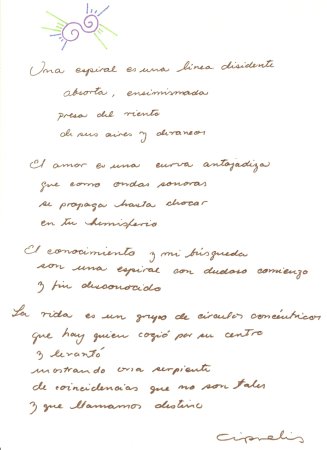 Una espiral es una línea disidente
absorta, ensimismada
presa del viento
de sus aires y devaneos
El amor es una curva antojadiza
que como ondas sonoras
se propaga hasta chocar
en tu hemisferio
El conocimiento y mi búsqueda
son una espiral con dudoso comienzo
y fin desconocido
La vida es un grupo de círculos concéntricos
que hay quien cogió por su centro
y levantó
mostrando una serpiente
de coincidencias que no son tales
y que llamamos destino